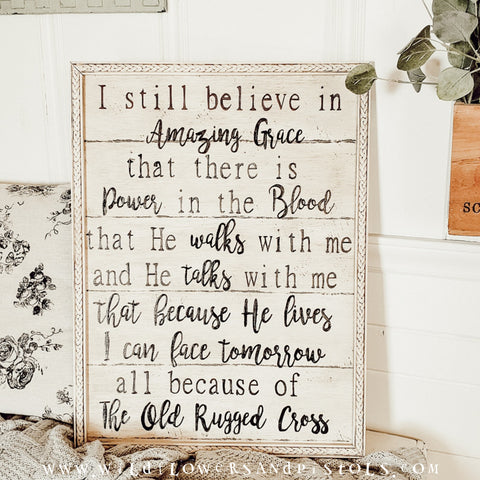 I still believe in
Amazing Grace
that there is
Power in the Blood
that He walks with me
and He talks with me
that because He lives
I can face tomorrow
all because of
The Old Rugged Cross
SC
www.wildflowersandpistols.com